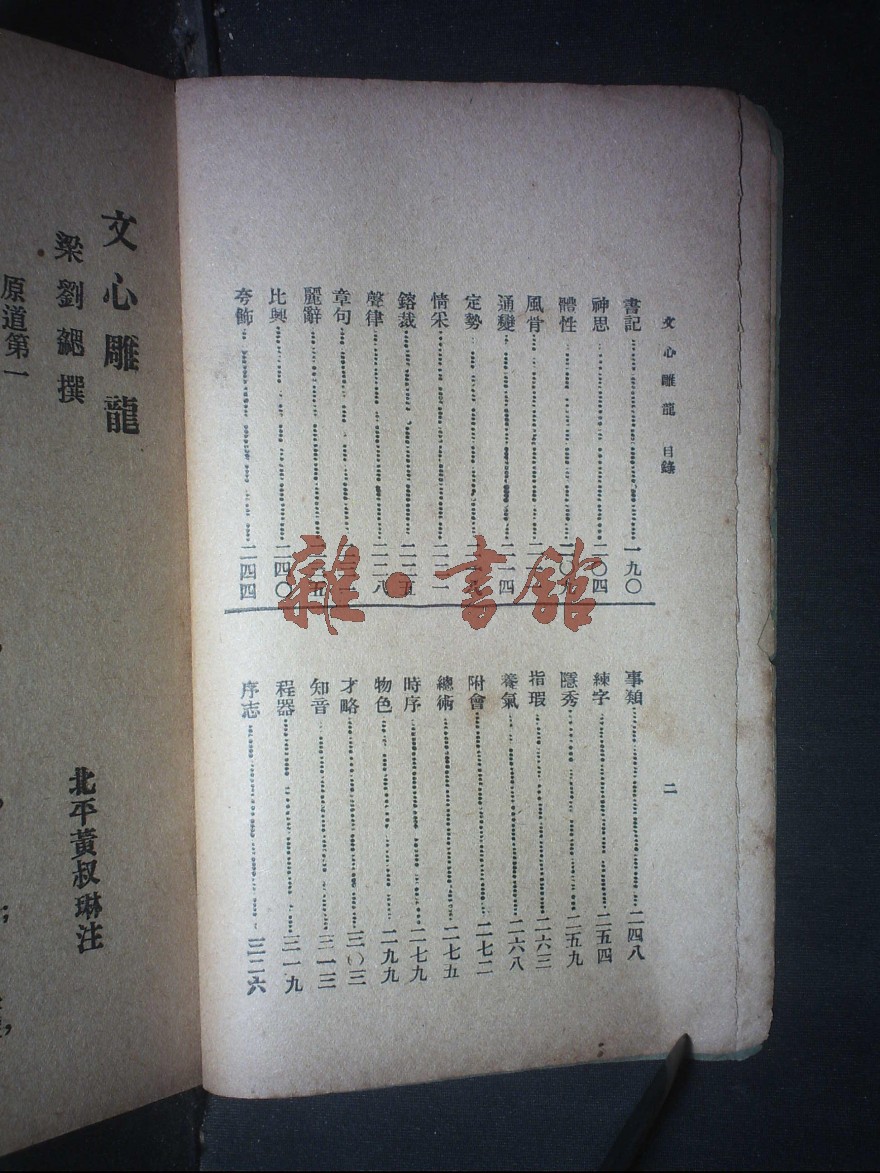 文心雕龍 目錄 二
書記……一九〇
神思……二〇四
體性……二〇九
風骨……
通變……二一四
定勢……
情采……
鎔裁……二二五
聲律……二二八
章句……
麗辭……
比興……二四〇
夸飾……二四四
事類……二四八
練字……二五四
隱秀……二五九
指瑕……二六三
養氣……二六八
附會……二七二
總術……二七五
時序……二七九
物色……二九九
才略……三〇三
知音……三一三
程器……三一九
序志……三二六
文心雕龍
梁劉勰撰
北平黃叔琳注
原道第一
雜·書館